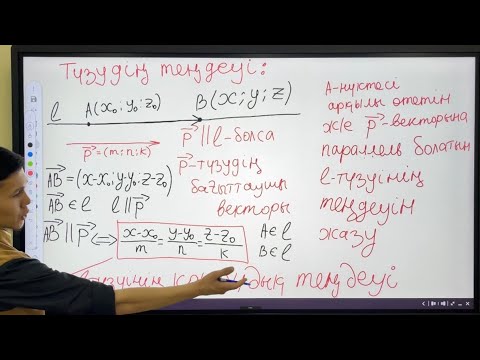 Түзудің теңдеуі:
l A(x₀; y₀; z₀) B(x; y; z)
p⃗ = (m; n; k)
p⃗ || l - болса
p⃗ - түзудің
бағыттаушы
векторы
AB⃗ = (x-x₀; y-y₀; z-z₀)
AB⃗ ∈ l l || p⃗
AB⃗ || p⃗ ⟺ (x-x₀)/m = (y-y₀)/n = (z-z₀)/k
A ∈ l
B ∈ l
теңдеуі
A-нүктесі
арқылы өтетін
ж/е p⃗-векторына
параллель болатын
l-түзуінің
теңдеуін
жазу